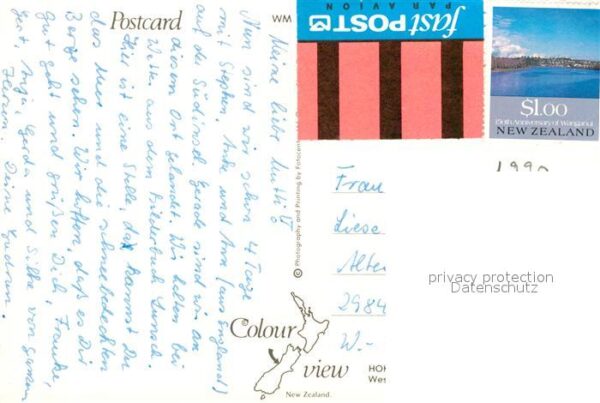 Postcard
WM
Meine liebe Mutti!
Nun sind wir schon 4 Tage
mit Stephen, Anke und Ann (aus England)
auf der Südinsel. Gerade sind wir an
diesem Ort gelandet. Wir hatten bei
Wetter aus dem Bilderbuch
Hier ist eine Stelle, da kannst Du
das Meer und die schneebedeckten
Berge sehen. Wir hoffen, daß es Dir
gut geht und grüßen Dich, Frauke,
Gert, Anja, Gerda und Silke von ganzem
Herzen. Deine Gudrun.
© Photography and Printing by Fotocent
Colour
view
New Zealand.
HOK
Wes
fastPOST
PAR AVION
$1.00
150th Anniversary of Wanganui
NEW ZEALAND
1990
Frau
Liese
Alte
2984
W.-
privacy protection
Datenschutz